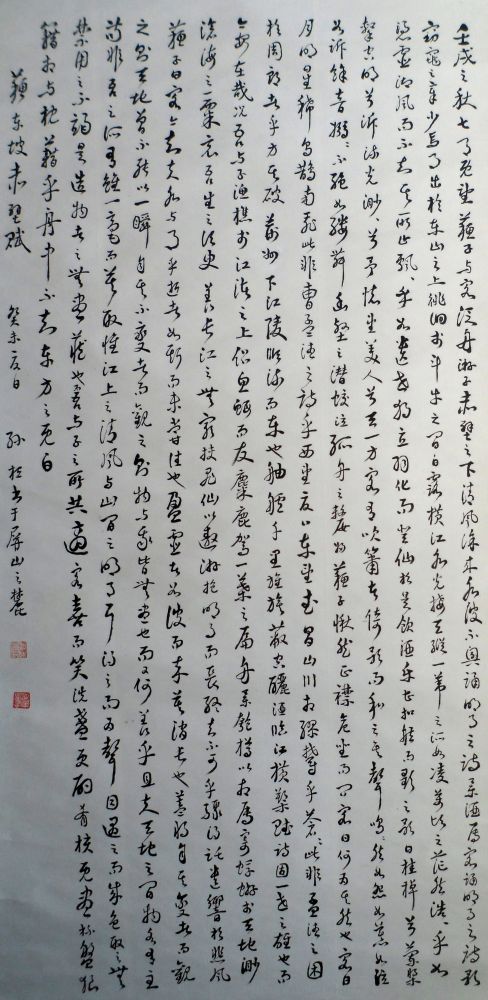 壬戌之秋七月既望蘇子與客泛舟游于赤壁之下清風徐來水波不興誦明月之詩舉酒屬客誦明月之詩歌
窈窕之章少焉月出於東山之上徘徊於斗牛之間白露橫江水光接天縱一葦之所如凌萬頃之茫然浩浩乎如
馮虛御風而不知其所止飄飄乎如遺世獨立羽化而登仙於是飲酒樂甚扣舷而歌之歌曰桂棹兮蘭槳
擊空明兮泝流光渺渺兮予懷望美人兮天一方客有吹簫者倚歌而和之其聲嗚嗚然如怨如慕如泣
如訴餘音嫋嫋不絕如縷舞幽壑之潛蛟泣孤舟之嫠婦蘇子愀然正襟危坐而問客曰何為其然也客曰
月明星稀烏鵲南飛此非曹孟德之詩乎西望夏口東望武昌山川相繆鬱乎蒼蒼此非孟德之困
於周郎者乎方其破荊州下江陵順流而東也舳艫千里旌旗蔽空釃酒臨江橫槊賦詩固一世之雄也而
今安在哉況吾與子漁樵於江渚之上侶魚蝦而友麋鹿駕一葉之扁舟舉匏樽以相屬寄蜉蝣於天地渺
滄海之一粟哀吾生之須臾羨長江之無窮挾飛仙以遨遊抱明月而長終知不可乎驟得託遺響於悲風
蘇子曰客亦知夫水與月乎逝者如斯而未嘗往也盈虛者如彼而卒莫消長也蓋將自其變者而觀
之則天地曾不能以一瞬自其不變者而觀之則物與我皆無盡也而又何羨乎且夫天地之間物各有主
苟非吾之所有雖一毫而莫取惟江上之清風與山間之明月耳得之而為聲目遇之而成色取之無
禁用之不竭是造物者之無盡藏也吾與子之所共適客喜而笑洗盞更酌肴核既盡杯盤狼
籍相與枕藉乎舟中不知東方之既白
蘇東坡赤壁賦 癸未夏日 孫 書于屏山之麓